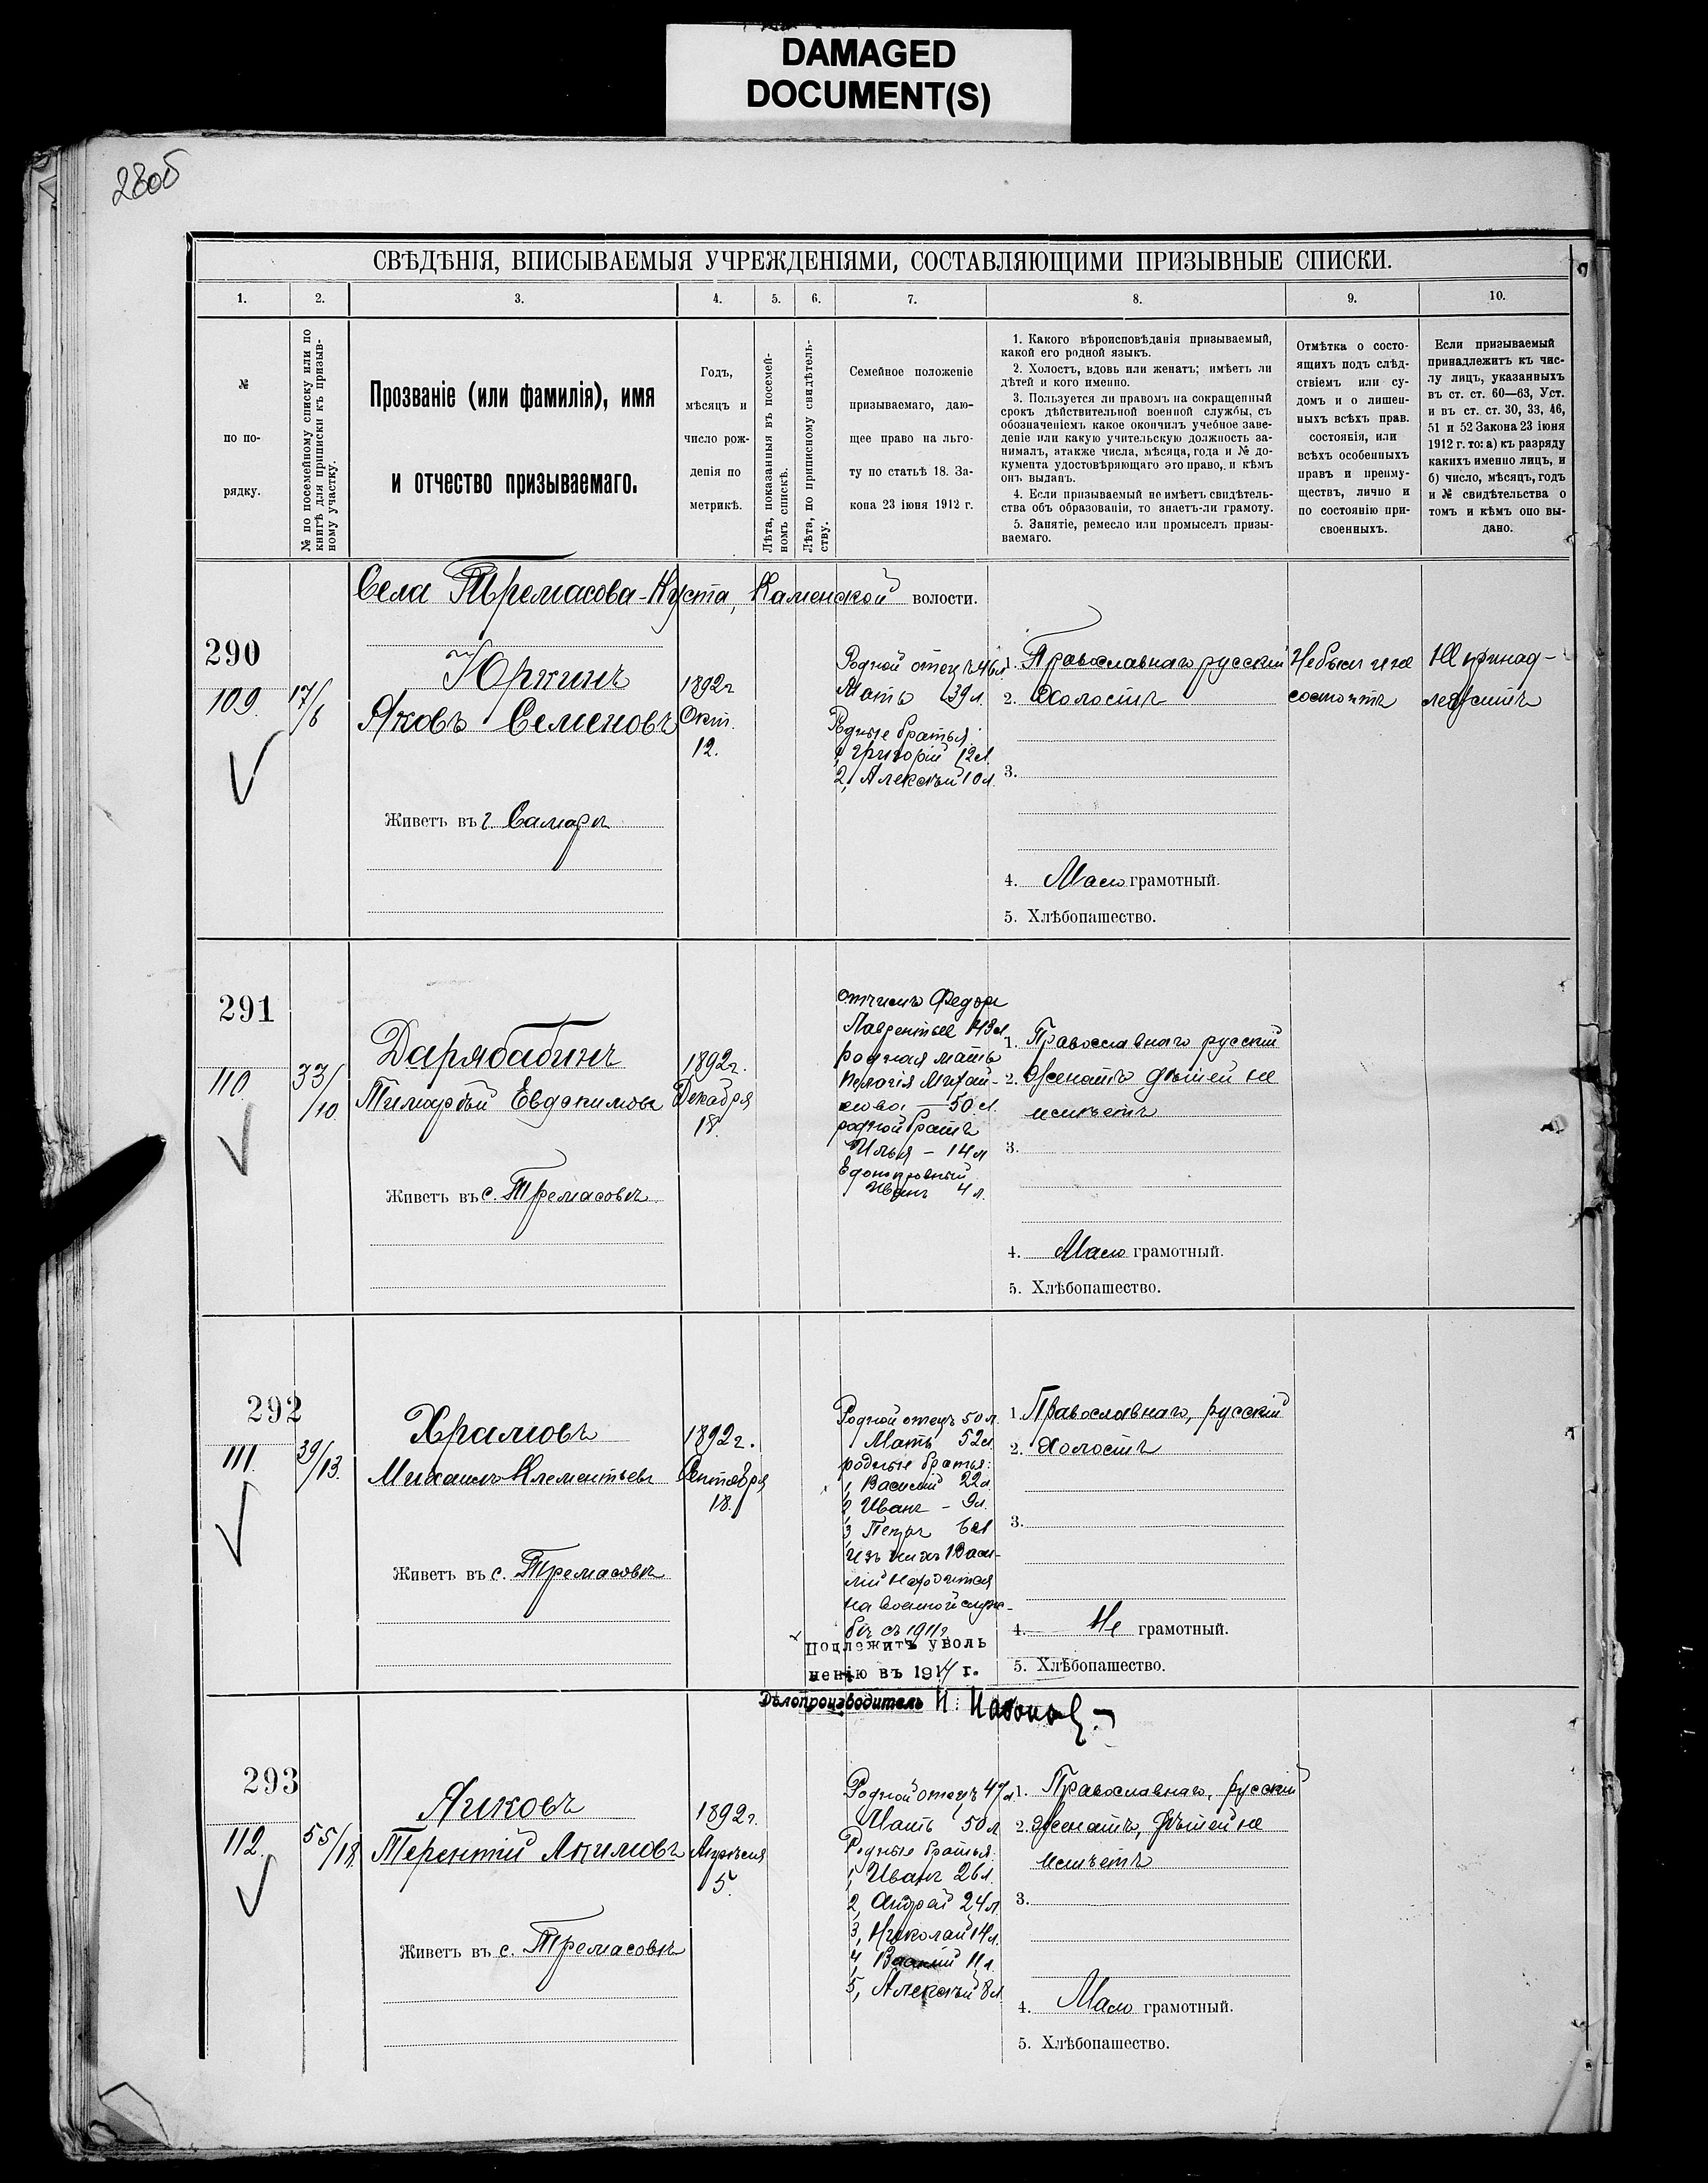 DAMAGED
DOCUMENT(S)
280об
СВѢДѢНІЯ, ВПИСЫВАЕМЫЯ УЧРЕЖДЕНІЯМИ, СОСТАВЛЯЮЩИМИ ПРИЗЫВНЫЕ СПИСКИ.
1.
2.
3.
4.
5.
6.
7.
8.
9.
10.
№
по по-
рядку.
№ по посемейному списку или по
книгѣ для приписки къ призыв-
ному участку.
Прозваніе (или фамилія), имя
и отчество призываемаго.
Годъ,
мѣсяцъ и
число рож-
денія по
метрикѣ.
Лѣта, показанныя въ посемей-
номъ спискѣ.
Лѣта, по приписному свидѣтель-
ству.
Семейное положеніе
призываемаго, даю-
щее право на льго-
ту по статьѣ 18. За-
кона 23 іюня 1912 г.
1. Какого вѣроисповѣданія призываемый,
какой его родной языкъ.
2. Холостъ, вдовъ или женатъ; имѣетъ ли
дѣтей и кого именно.
3. Пользуется ли правомъ на сокращенный
срокъ дѣйствительной военной службы, съ
обозначеніемъ какое окончилъ учебное заве-
деніе или какую учительскую должность за-
нималъ, атакже числа, мѣсяца, года и № до-
кумента удостовѣряющаго это право, и кѣмъ
онъ выданъ.
4. Если призываемый не имѣетъ свидѣтель-
ства объ образованіи, то знаетъ-ли грамоту.
5. Занятіе, ремесло или промыселъ призы-
ваемаго.
Отмѣтка о состо-
ящихъ подъ слѣд-
ствіемъ или су-
домъ и о лишен-
ныхъ всѣхъ прав.
состоянія, или
всѣхъ особенныхъ
правъ и преиму-
ществъ, лично и
по состоянію при-
своенныхъ.
Если призываемый
принадлежитъ къ чис-
лу лицъ, указанныхъ
въ ст. ст. 60—63, Уст.
и въ ст. ст. 30, 33, 46,
51 и 52 Закона 23 іюня
1912 г. то: а) къ разряду
какихъ именно лицъ, и
б) число, мѣсяцъ, годъ
и № свидѣтельства о
томъ и кѣмъ оно вы-
дано.
Села Тремасова-Куста, Каменской волости.
290
109.
17/6
Юркинъ
Яковъ Семеновъ
Живетъ въ г. Самарѣ
1892г
Окт.
12.
Родной отецъ 46л
Мать 39л.
Родные братья:
1, Григорій 12л.
2, Алексѣй 10л.
1. Православнаго русскій
2. Холостъ
3.
4. Мало грамотный.
5. Хлѣбопашество.
Небылъ и не
состоитъ
Не принад-
лежитъ
291
110.
33/10
Дарябабинъ
Тимофѣй Евдокимовъ
Живетъ въ с. Тремасовѣ
1892г.
Декабря
18.
отчимъ Федоръ
Лаврентьев 43л
родная мать
Пелагія Михай-
лова — 50л.
родной братъ
Илья — 14л
Едоноутробный
Иванъ 4л.
1. Православнаго русскій
2. Женатъ дѣтей не
имѣетъ
3.
4. Мало грамотный.
5. Хлѣбопашество.
292
111.
39/13.
Храмовъ
Михаилъ Клементьевъ
Живетъ въ с. Тремасовѣ
1892г.
Сентября
18.
Родной отецъ 50л.
Мать 52л
родные братья:
1, Василій 22л
2, Иванъ — 9л.
3, Петръ 6л
Изъ нихъ Васи-
лій находится
на военной служ-
бѣ съ 1911г.
Подлежитъ уволь
ненію въ 1914 г.
Дѣлопроизводитель И.
1. Православнаго, русскій
2. Холостъ
3.
4. Не грамотный.
5. Хлѣбопашество.
293
112.
55/18
Яиковъ
Терентій Акимовъ
Живетъ въ с. Тремасовѣ
1892г.
Апрѣля
5.
Родной отецъ 47л
Мать 50л
Родные братья:
1, Иванъ 26л.
2, Андрей 24л
3, Николай 14л.
4, Василій 11л.
5, Алексѣй 8л
1. Православнаго, русскій
2. Женатъ, дѣтей не
имѣетъ
3.
4. Мало грамотный.
5. Хлѣбопашество.